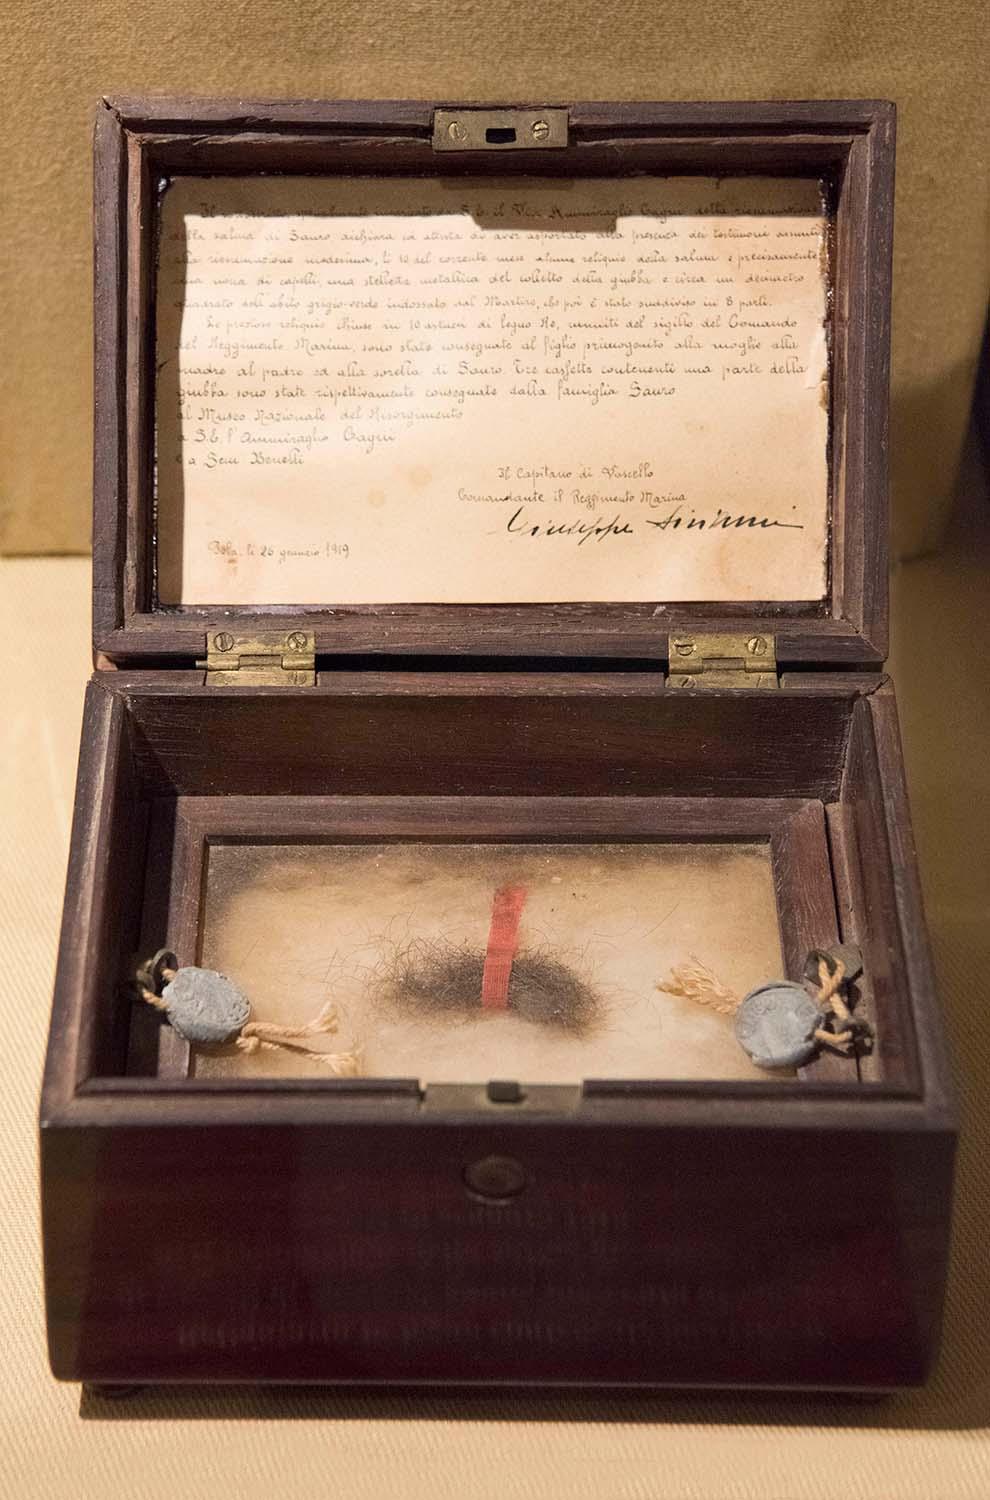 Il sottoscritto, specialmente incaricato da S.E. il Vice Ammiraglio Cagni della riesumazione
della salma di Sauro, dichiara ed attesta di aver asportato alla presenza dei testimoni assunti
alla riesumazione medesima, li 10 del corrente mese alcune reliquie della salma e precisamente
una ciocca di capelli, una stelletta metallica del colletto della giubba e circa un decimetro
quadrato dell'abito grigio-verde indossato dal Martire, che poi è stato suddiviso in 8 parti.
Le preziose reliquie chiuse in 10 astucci di legno
muniti del sigillo del Comando
del Reggimento Marina, sono state consegnate al figlio primogenito alla moglie alla
madre al padre ed alla sorella di Sauro. Tre cassette contenenti una parte della
giubba sono state rispettivamente consegnate dalla famiglia Sauro
al Museo Nazionale del Risorgimento
a S.E. l'Ammiraglio Cagni
e a Sem Benelli
Il Capitano di Vascello
Comandante il Reggimento Marina
Giuseppe Sirianni
Pola, li 26 gennaio 1919